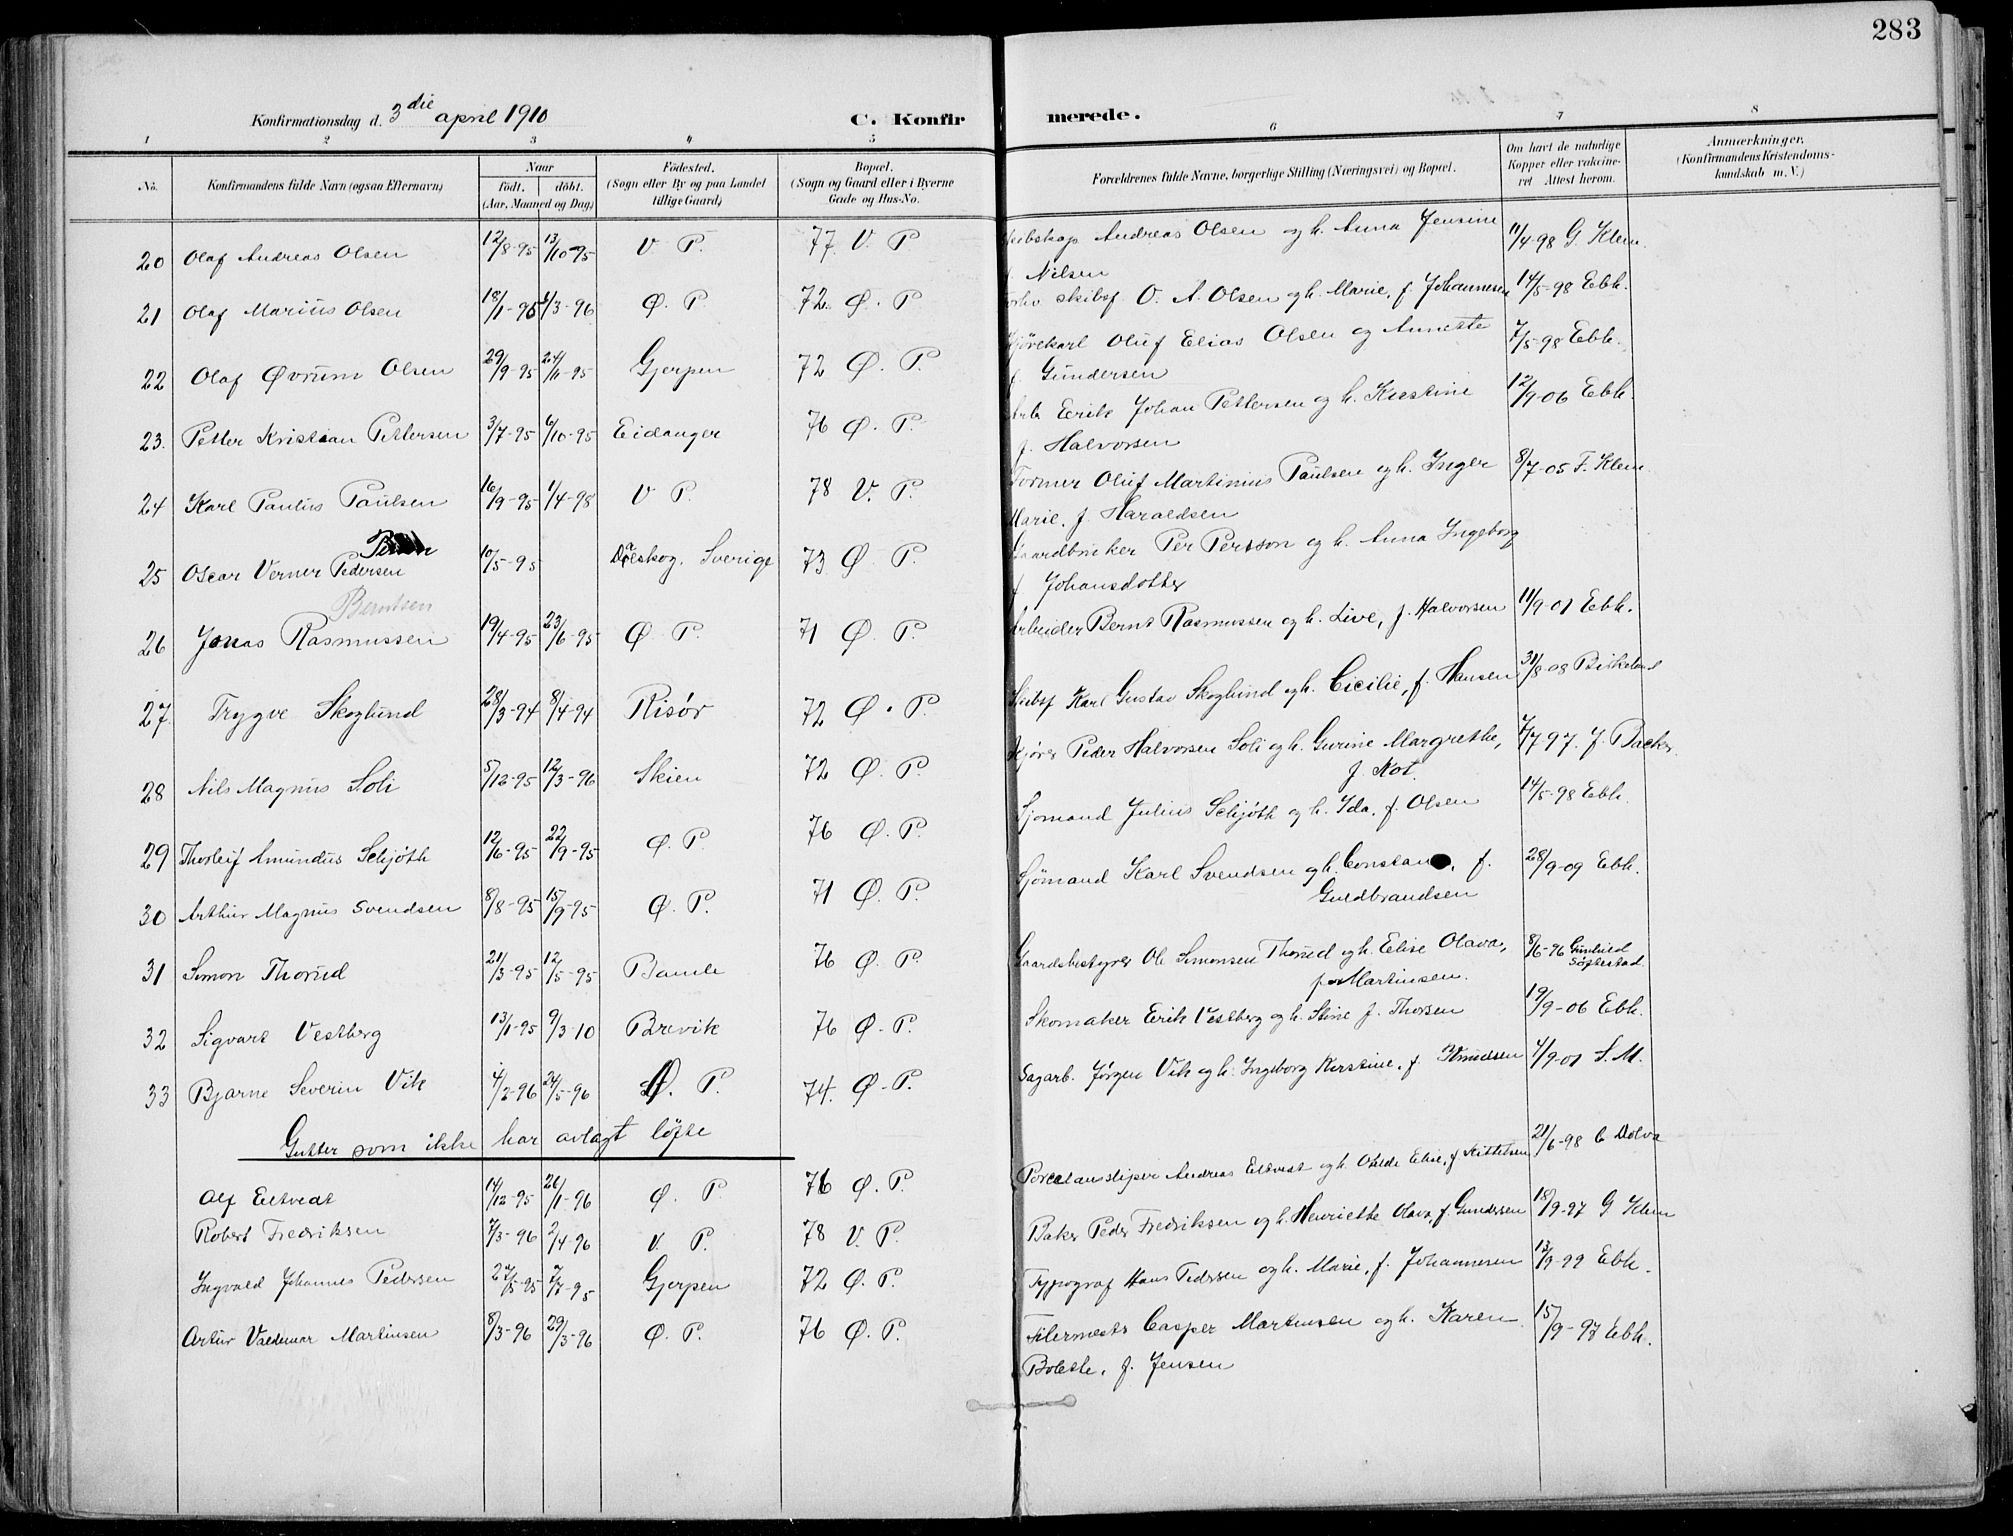 283
Konfirmationsdag d. 3die april 1910
C. Konfirmerede.
1 2 3 4 5 6 7 8
No. Konfirmandens fulde Navn (ogsaa Efternavn) Naar födt. döbt. (Aar, Maaned og Dag) Födested. (Sogn eller By og paa Landet tillige Gaard) Bopæl. (Sogn og Gaard eller i Byerne Gade og Hus-No. Forældrenes fulde Navne, borgerlige Stilling (Næringsvei) og Bopæl. Om havt de naturlige Kopper eller vakcineret Attest herom. Anmærkninger. (Konfirmandens Kristendomskundskab m. V.)
20 Olaf Andreas Olsen 12/8-95 13/10-95 V P. 77 V. P Andreas Olsen og h. Anna Jensine f. Nilsen 11/4-98 G. Klem.
21 Olaf Marius Olsen 18/1-95 1/3-96 Ø. P. 72. Ø. P skibsf. O. A. Olsen og h. Marie, f. Johannesen 14/5-98 Ebh.
22 Olaf Øvrum Olsen 29/9-95 24/11-95 Gjerpen 72 Ø. P. Kjørekarl Oluf Elias Olsen og Annette f. Gundersen 7/5-98 Ebh.
23. Petter Kristian Pettersen 3/7-95 6/10-95 Eidanger 76 Ø. P. Arb Eerik Johan Pettersen og h. Kirstine f. Halvorsen 12/9-06 Ebh.
24 Karl Paulus Paulsen 16/9-95 1/4-98 V P. 78 V. P. Former Oluf Martinius Paulsen og h. Inger Marie, f. Haraldsen 8/7-05 F. Klem.
25 Oscar Verner Pedersen 10/5-95 Dalskog. Sverige 73 Ø P. Gaardbruker Per Persson og h. Anna Ingeborg f Johansdotter
Berntsen
26 Jonas Rasmussen 19/4-95 23/6-95 Ø P. 71 Ø. P. Arbeider Bernt Rasmussen og h. Live, f. Halvorsen 11/9-01 Ebh.
27. Trygve Skoglund 28/3-94 8/4-94 Risør 72 Ø. P. Skibsf Karl Gustav Skoglund og h. Cicilie, f. Hansen 31/8-08 Birkeland
28 Nils Magnus Soli 5/12-95 12/3-96 Skien 72 Ø. P. Kjører Peder Halvorsen Soli og h. Gurine Margrethe, f. Kot. 7/7-97. J. Backer
29 Thorleif Amundus Schjøth 12/6-95 22/9-95 Ø. P. 76 Ø. P. Sjømand Julius Schjøth og h. Ida, f. Olsen 14/5-98 Ebh.
30 Arthur Magnus Svendsen 8/8-95 15/9-95 Ø. P. 71 Ø. P. Sjømand Karl Svendsen og h. Constan, f. Guldbrandsen 28/9-09 Ebh.
31 Simon Thorud 21/3-95 12/5-95 Bamle 76 Ø. P. Gaardsbestyrer Ole Simonsen Thorud og h. Elise Olava, f. Martinsen. 8/6-96 Gunhild Søftestad.
32 Sigvart Vestberg 13/1-95 9/3-10 Brevik 76 Ø. P. Skomaker Erik Vestberg og h. Stine f. Thorsen 19/9-06 Ebh.
33 Bjarne Severin Vik 4/2-96 24/5-96 Ø. P. 74. Ø. P. Sagarb. Jørgen Vik og h. Ingeborg Kirstine, f. Knudsen 4/9-01 S. M.
Gutter som ikke har avlagt løfte
Alf Eltvedt 14/12-95 26/1-96 Ø. P. 76 Ø. P. Porcelænsliper Andreas Eltvedt og h. Olelde Elise, f. Kittelsen 21/6-98 C Dolva
Robert Fredriksen 7/3-96 2/4-96 V. P. 78 V. P. Baker Peder Fredriksen og h. Henriette Olava, f. Gundersen 18/9-97 G Klem
Ingvald Johannes Pedersen 27/5-95 7/7-95 Gjerpen 72 Ø. P. Typograf Hans Pedersen og h. Marie, f. Johannesen 13/9-99 Ebh.
Artur Valdemar Martinsen 8/3-96 29/3-96 Ø. P. 76 Ø. P. Casper Martinsen og h. Karen Bolette, f. Jensen 15/9-97 Ebh.